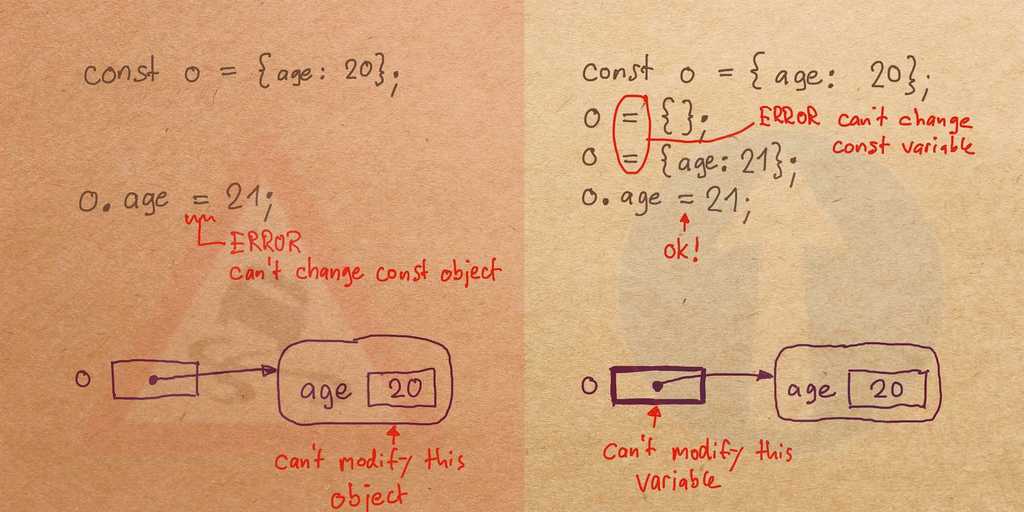 const o = {age: 20};
o.age = 21;
ERROR
can't change const object
o
age 20
can't modify this
object
const o = { age: 20};
o = {};
o = {age: 21};
ERROR can't change
const variable
o.age = 21;
ok!
o
age 20
can't modify this
variable